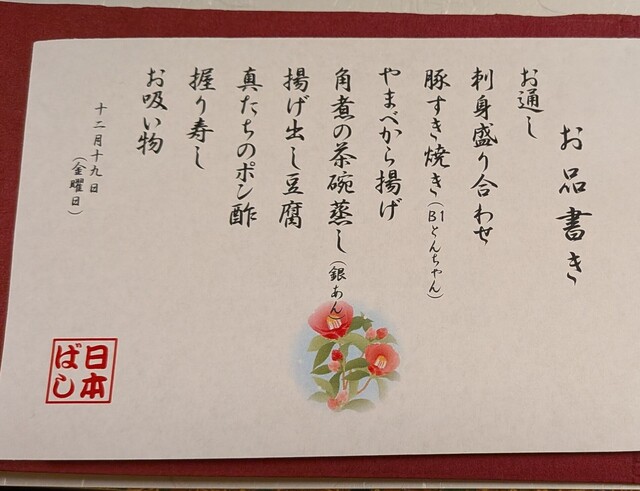 お品書き
お通し
刺身盛り合わせ
豚すき焼き(B1とんちゃん)
やまべから揚げ
角煮の茶碗蒸し(銀あん
揚げ出し豆腐
真たちのポン酢
握り寿し
お吸い物
十二月十九日
(金曜日)
日本
ばし